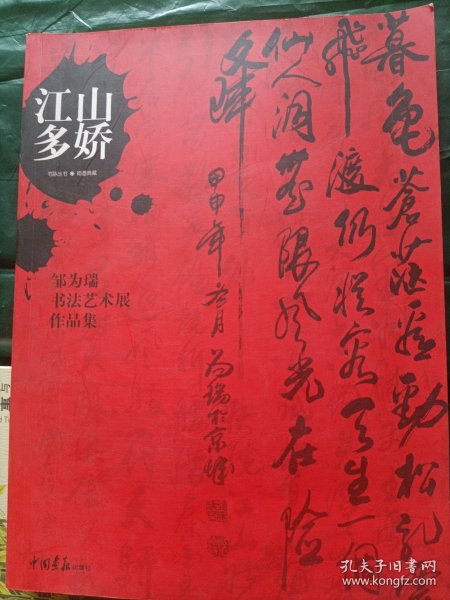 江山
多娇
书脉丛书 翰墨典藏
邹为瑞
书法艺术展
作品集
暮色苍茫看劲松乱
飞渡仍从容天生一个
仙人洞无限风光在险
文峰
甲申年
为瑞于京城
中国画报出版社
孔夫子旧书网
kongfz.com